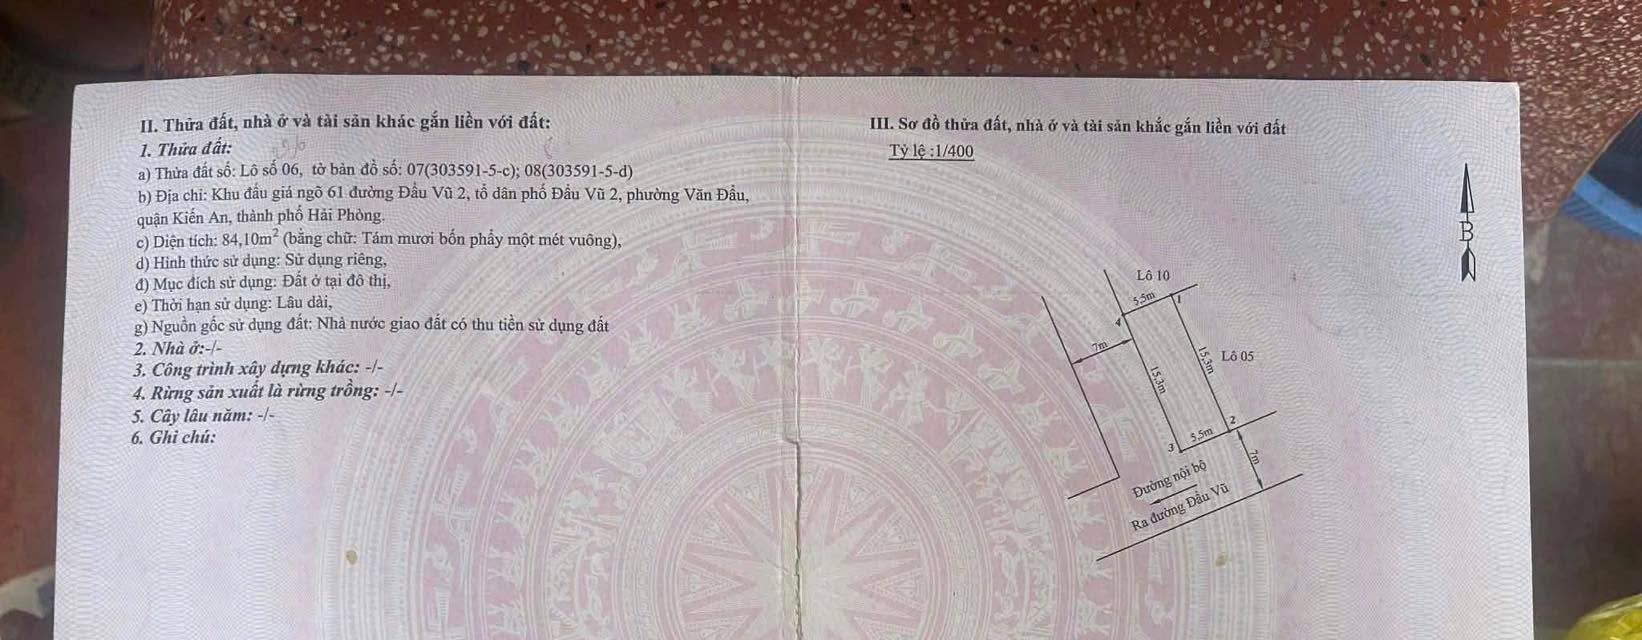 II. Thửa đất, nhà ở và tài sản khác gắn liền với đất:
1. Thửa đất:
a) Thửa đất số: Lô số 06, tờ bản đồ số: 07(303591-5-c); 08(303591-5-d)
b) Địa chỉ: Khu đấu giá ngõ 61 đường Đẩu Vũ 2, tổ dân phố Đẩu Vũ 2, phường Văn Đẩu,
quận Kiến An, thành phố Hải Phòng.
c) Diện tích: 84,10m² (bằng chữ: Tám mươi bốn phẩy một mét vuông),
d) Hình thức sử dụng: Sử dụng riêng,
đ) Mục đích sử dụng: Đất ở tại đô thị,
e) Thời hạn sử dụng: Lâu dài,
g) Nguồn gốc sử dụng đất: Nhà nước giao đất có thu tiền sử dụng đất
2. Nhà ở:-/-
3. Công trình xây dựng khác: -/-
4. Rừng sản xuất là rừng trồng: -/-
5. Cây lâu năm: -/-
6. Ghi chú:
III. Sơ đồ thửa đất, nhà ở và tài sản khắc gắn liền với đất
Tỷ lệ :1/400
B
Lô 10
5,5m
1
4
7m
15,3m
15,3m
Lô 05
2
5,5m
3
7m
Đường nội bộ
Ra đường Đẩu Vũ